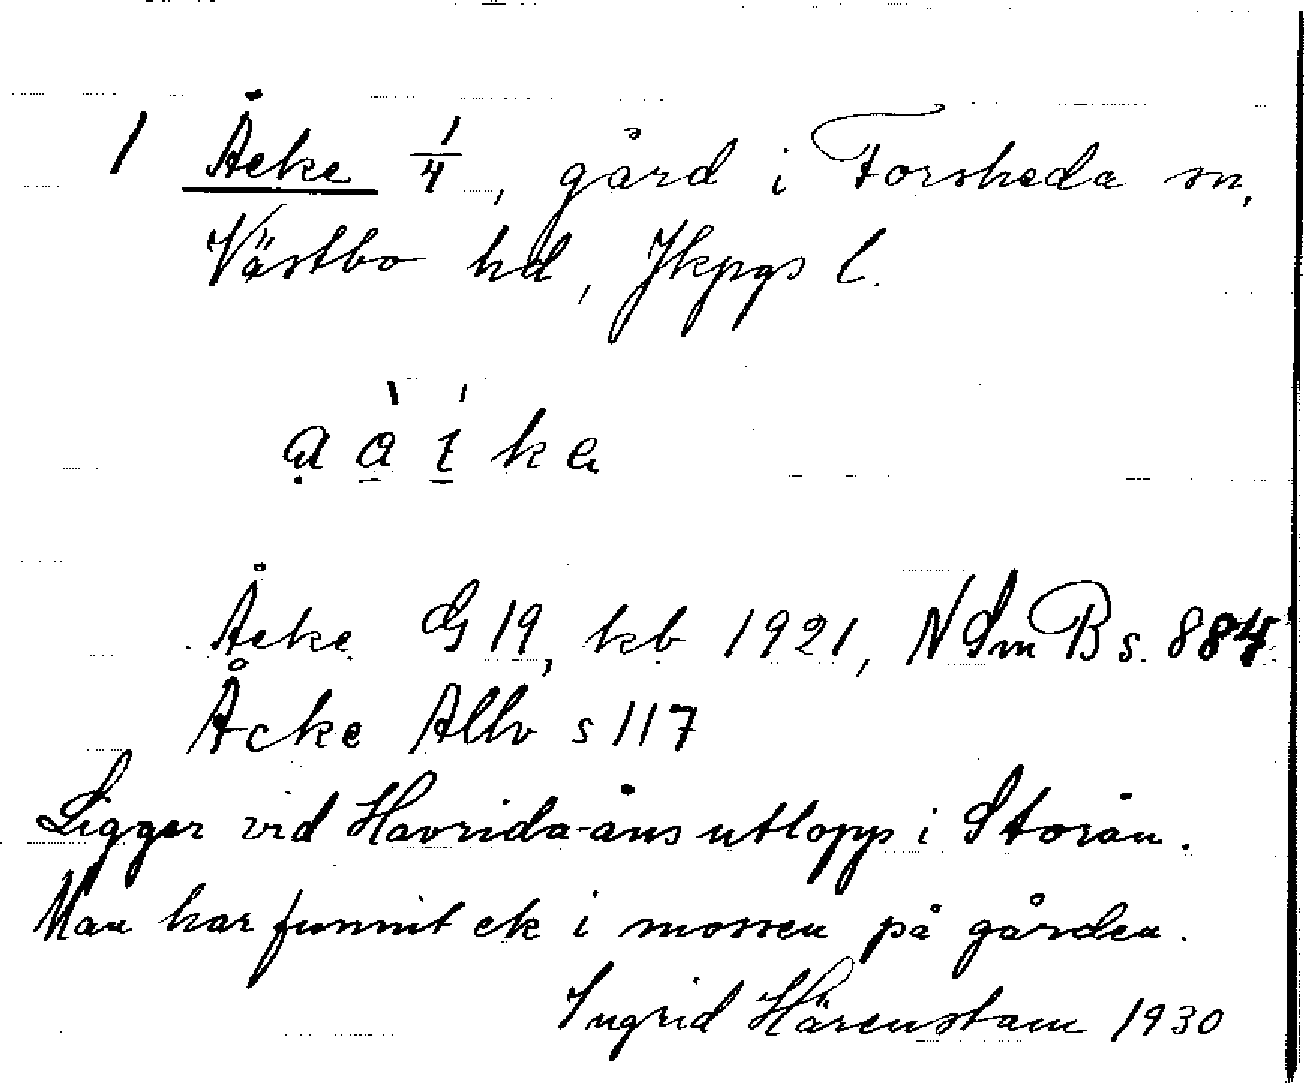 1 Åcke 1/4, gård i Forsheda sn,
Västbo hd, Jkpgs l.
Åcke G 19, kb 1921, NSmB s. 884.
Åcke Allv s 117
Ligger vid Havrida-åns utlopps i Storån.
Man har funnit ek i mossen på gården.
Ingrid Härenstam 1930